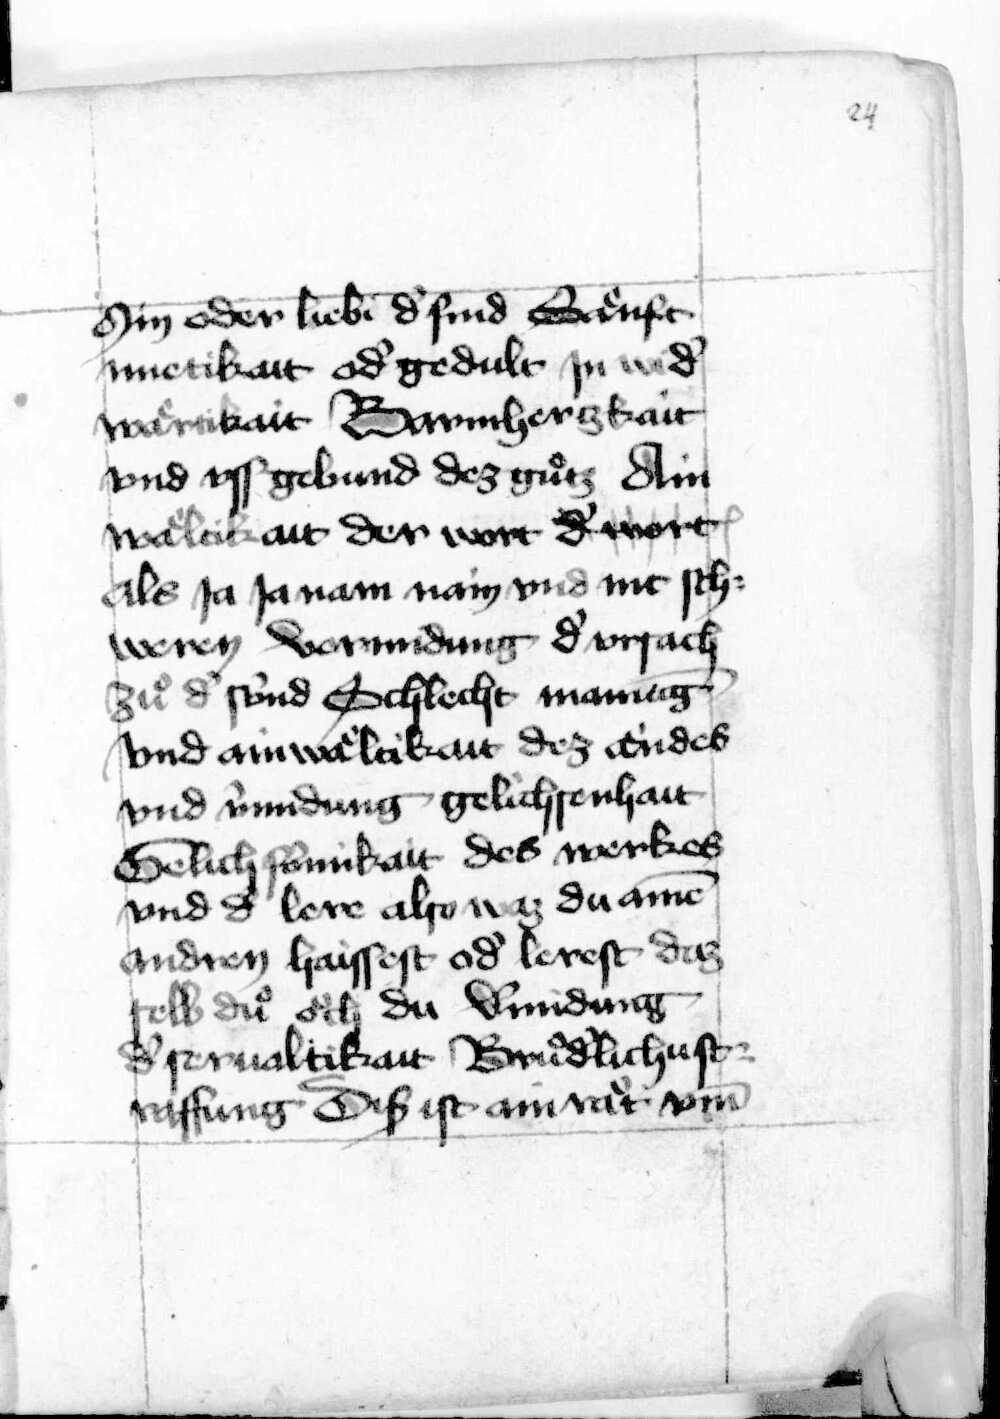 24
Min oder liebi d̕ find Saͤnft
muetikait od̕ gedult In wid̕
waͤrtikait Barmhertzkait
vnd vss gebund dez guͦtz Ain
waͤltikait der wort d̕ wort
als Ja Ja nain nain vnd nit sch⸗
weren Vermidung d̕ vrsach
zuͦ d̕ sünd Schlecht mainūg
vnd ainwaͤltikait dez endes
vnd v̕midung gelichsenhait
Gelichfoͤmikait des werkes
vnd d̕ lere also waz du ainē
andren haissest od̕ lerest daz
selb duͦ oͧch du V̕midung
d̕ serualtikait Bruͤd̕lichu st⸗
raffung Diß ist ain raͤt vm̄